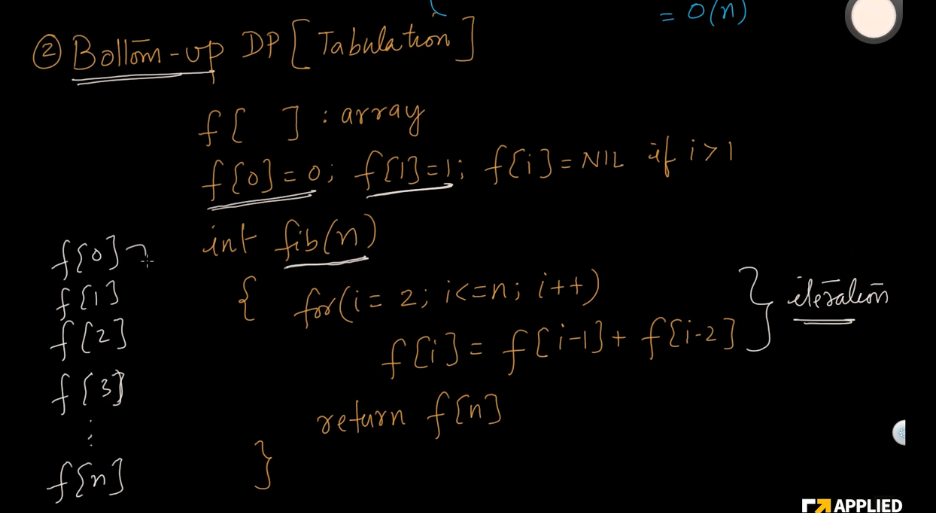 = O(n)
② Bottom-up DP [Tabulation]
f[ ] : array
f[0]=0; f[1]=1; f[i]=NIL if i>1
int fib(n)
{ for(i=2; i<=n; i++)
f[i]= f[i-1]+ f[i-2] } iteration
return f[n]
}
f[0]
f[1]
f[2]
f[3]
⋮
f[n]
APPLIED